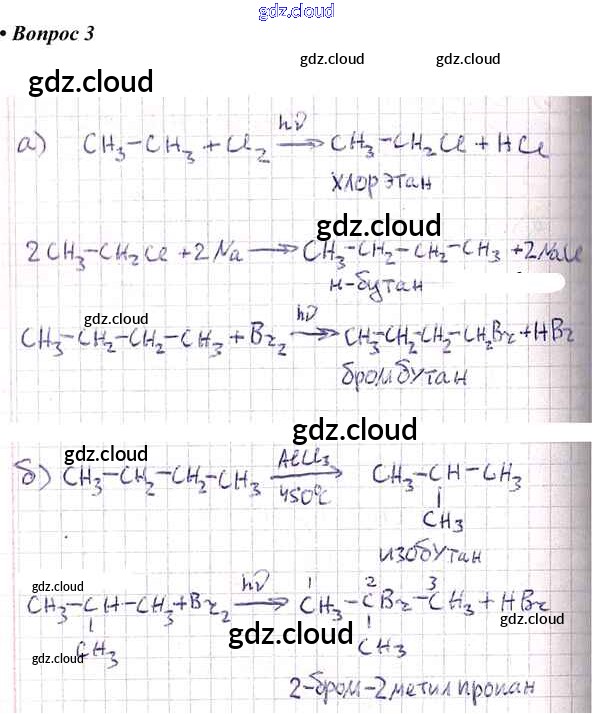 gdz.cloud
• Вопрос 3
gdz.cloud gdz.cloud
gdz.cloud
hν
а) CH3–CH3 + Cl2 ⟶ CH3–CH2Cl + HCl
хлорэтан
gdz.cloud
2CH3–CH2Cl + 2Na ⟶ CH3–CH2–CH2–CH3 + 2NaCl
н-бутан
gdz.cloud
hν
CH3–CH2–CH2–CH3 + Br2 ⟶ CH3–CH2–CH2–CH2Br + HBr
бромбутан
gdz.cloud
gdz.cloud
AlCl3
б) CH3–CH2–CH2–CH3 ⟶ CH3–CH–CH3
450°C
CH3
изобутан
gdz.cloud
hν 1 2 3
CH3–CH–CH3 + Br2 ⟶ CH3–CBr–CH3 + HBr
gdz.cloud
gdz.cloud
CH3 CH3
gdz.cloud
2-бром-2метилпропан